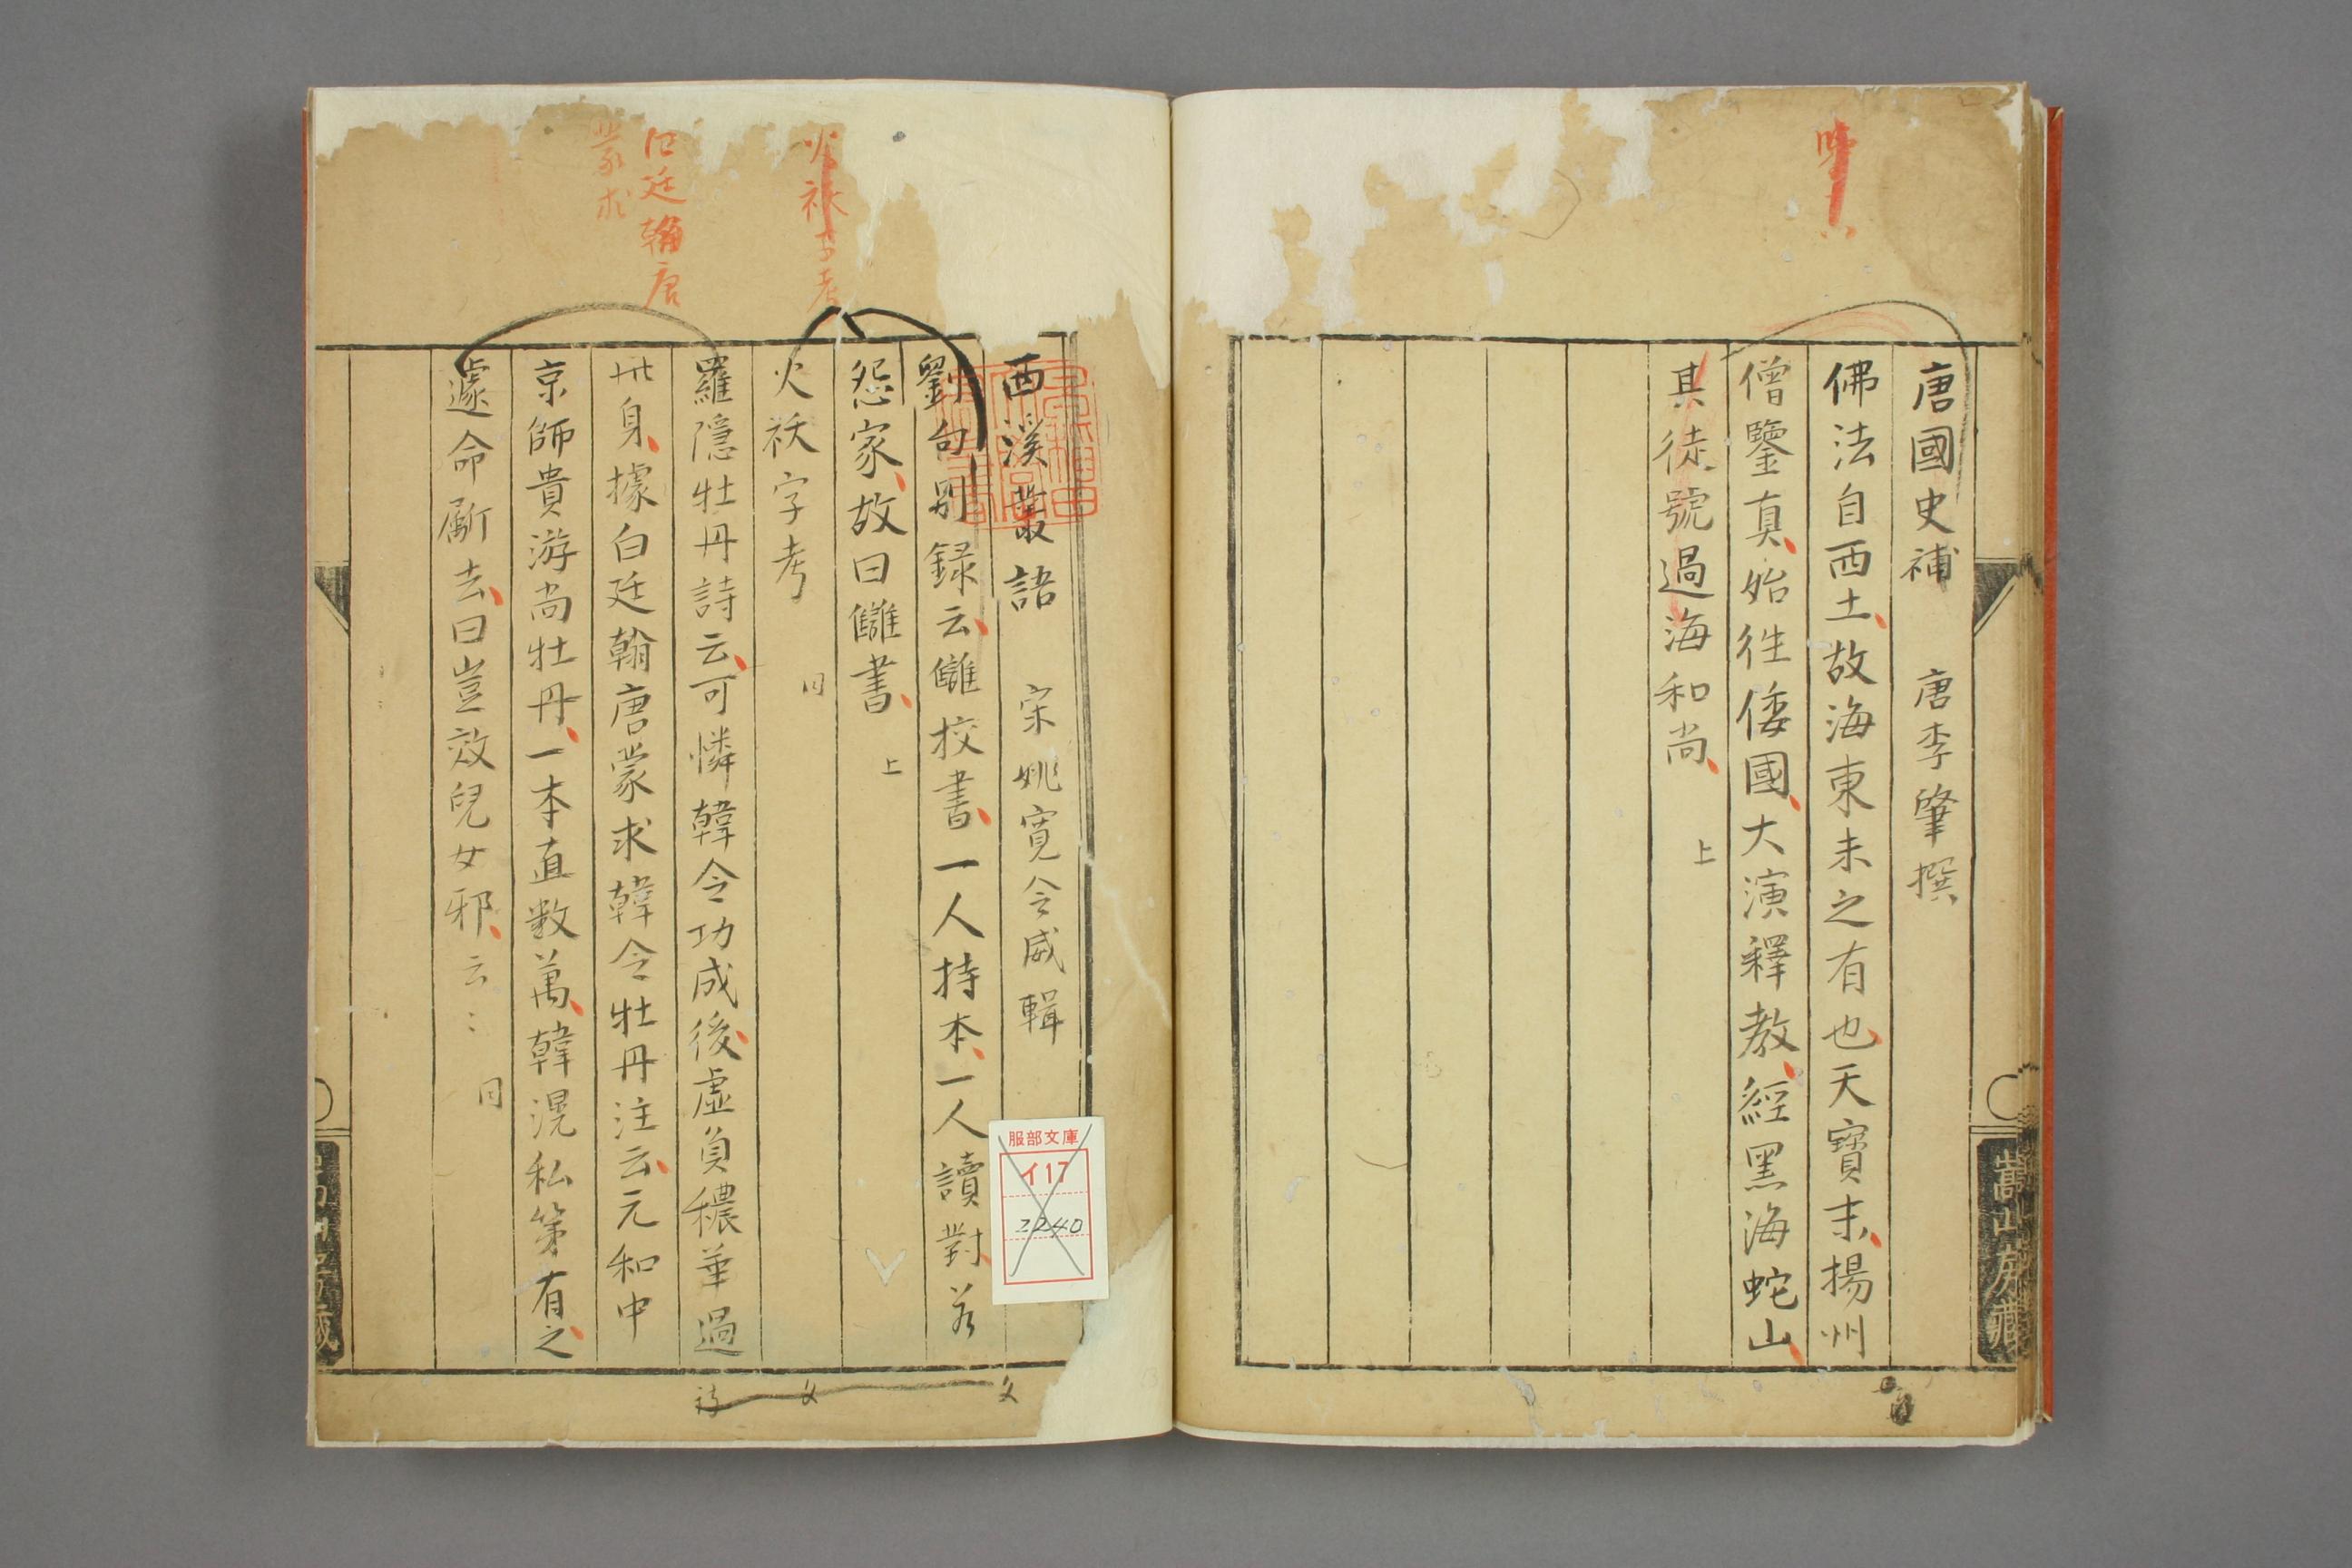 唐國史補　唐李肇撰
佛法自西土、故海東未之有也、天寶末、揚州
僧鑒真、始徃倭國、大演釋教、經黑海蛇山、
其徒號過海和尚、　上
嵩山房藏
西溪叢語　宋姚寬令威輯
劉向別録云、讎校書、一人持本、一人讀對、若
怨家、故曰讎書、　上
火祅字考　同
羅隠牡丹詩云、可憐韓令功成後、虚負穠華過
此身、據白廷翰唐蒙求韓令牡丹注云、元和中
京師貴游尚牡丹、一本直数萬、韓滉私第有之、
遽命斸去、曰豈效兒女邪、云〻　同
火祅字考
白廷翰唐
蒙求
服部文庫
イ17
2240